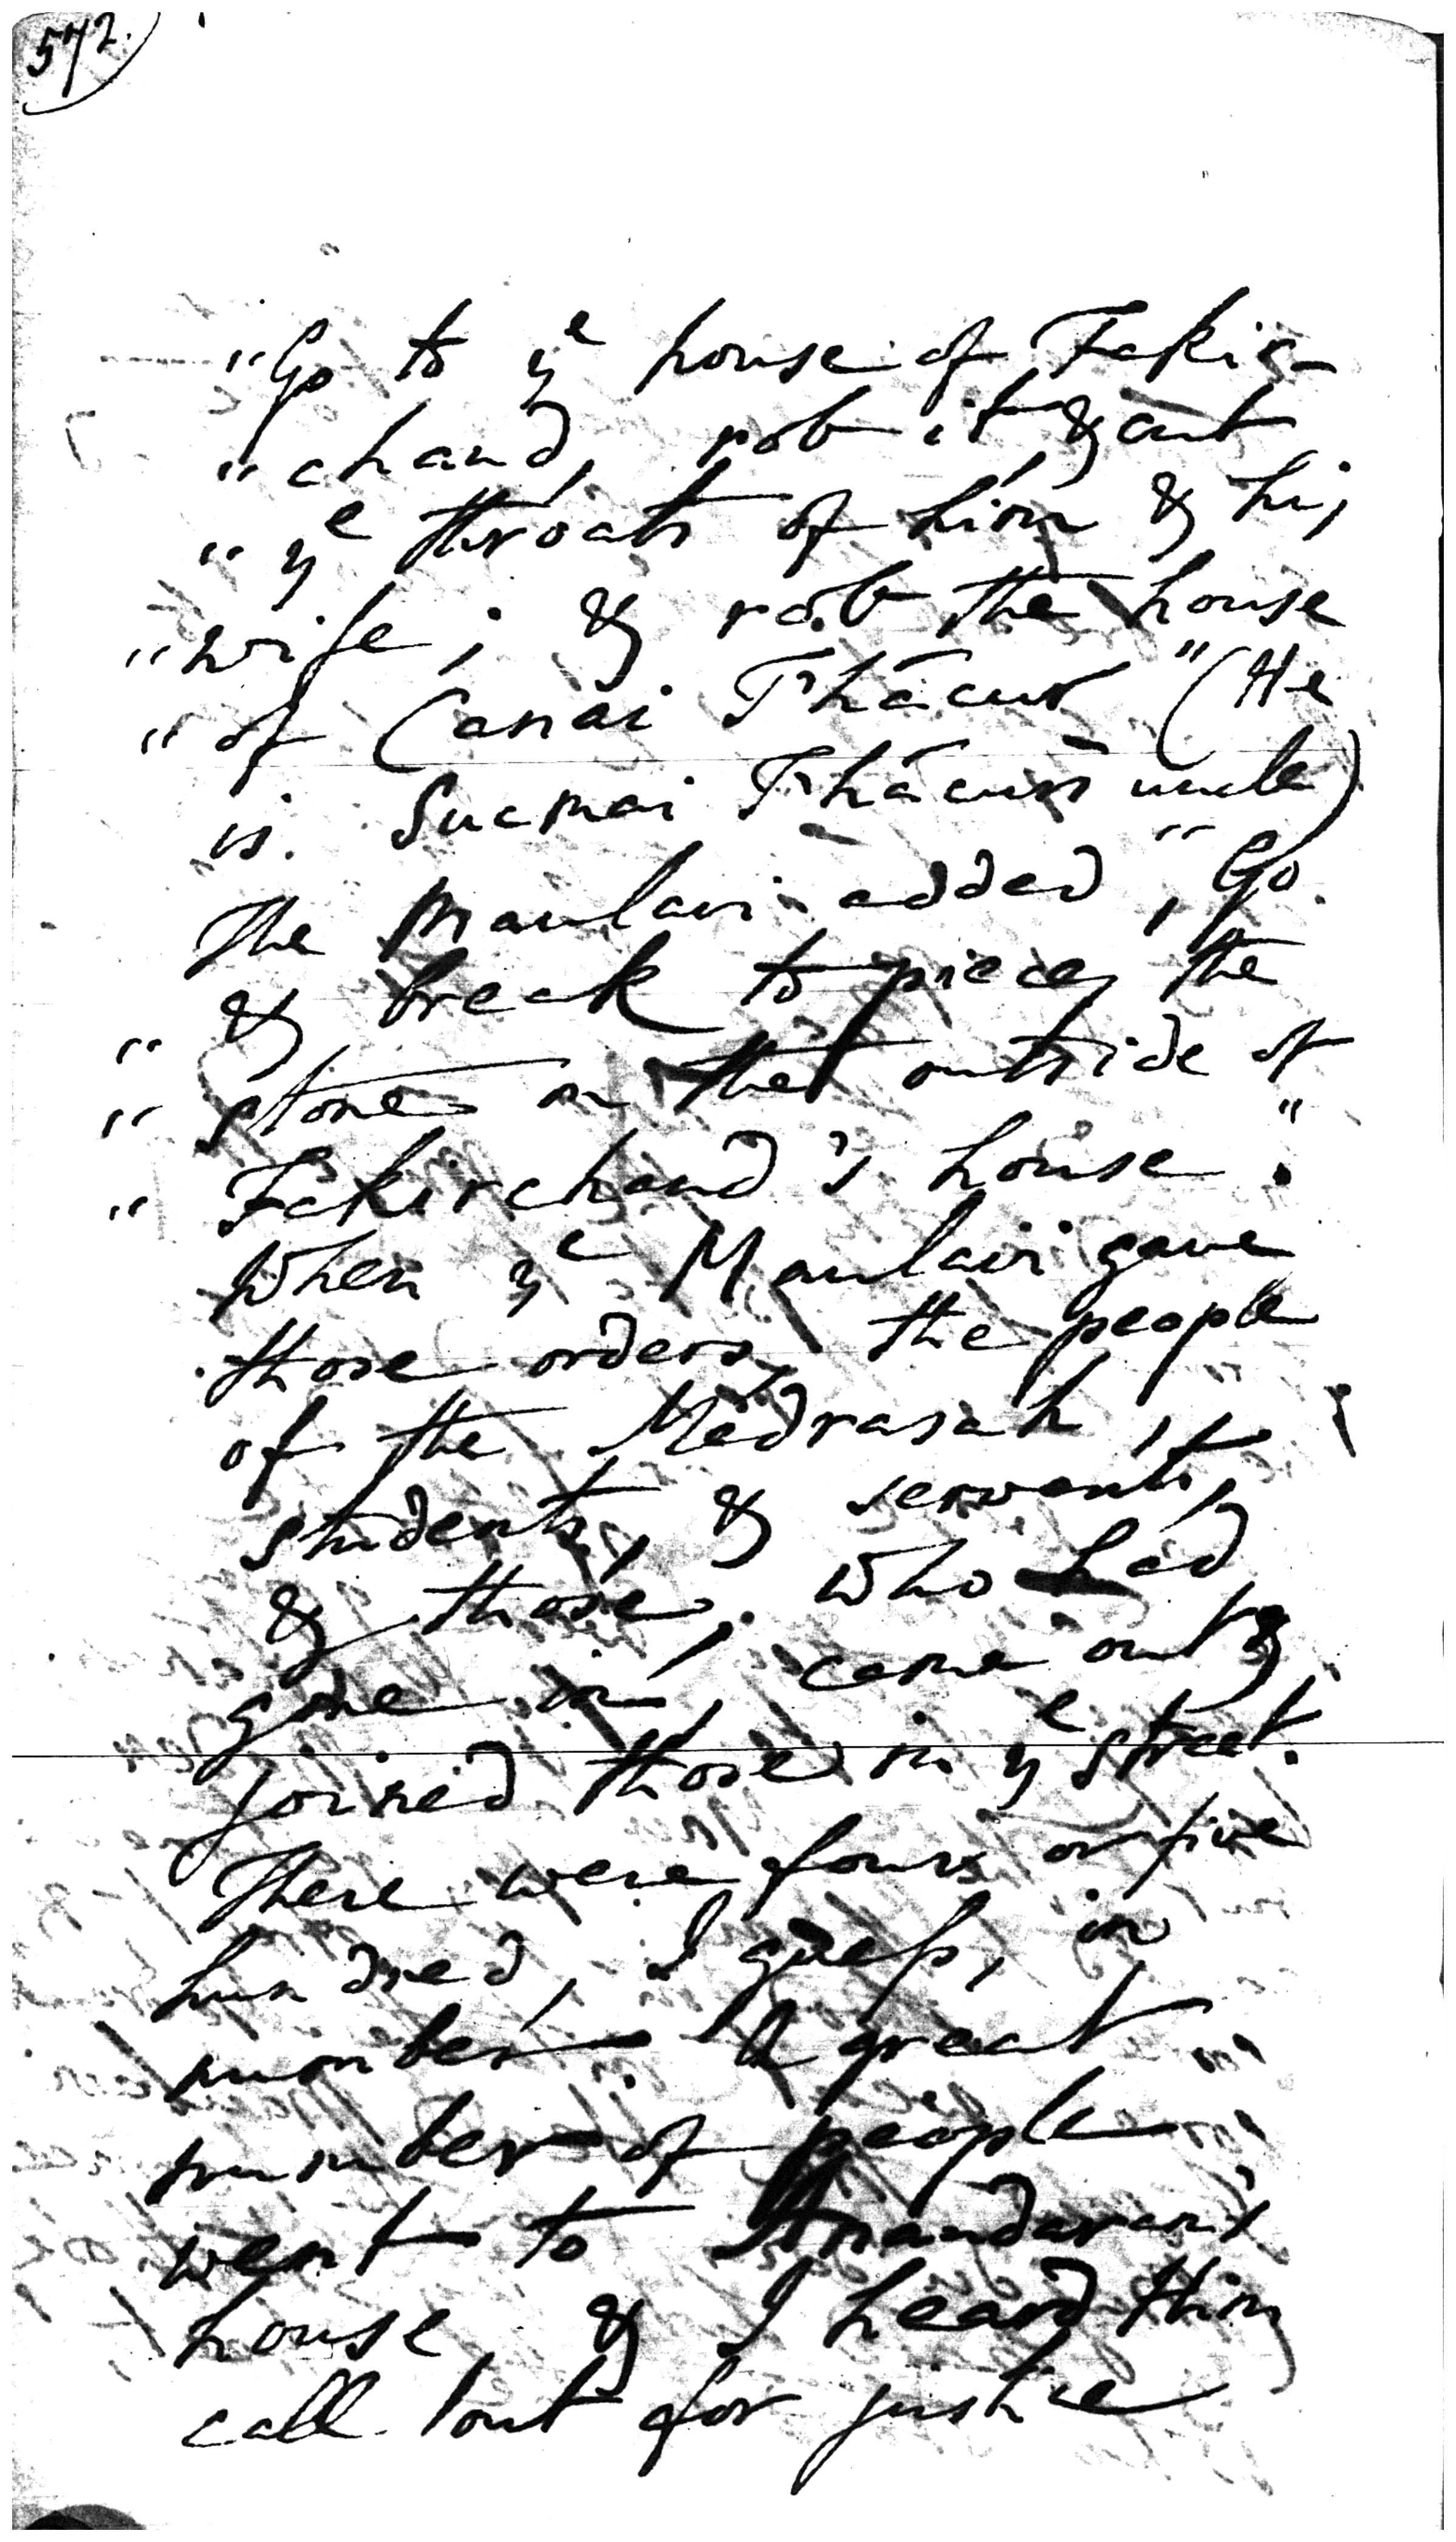 572.
"Go to yᵉ house of Fakir-
"chand, rob it & cut
"yᵉ throats of him & his
"wife; & rob the house
"of Canai T'hácur" (He
is Sucmai T'hácur's uncle)
The Maulavi added, "Go
"& break to pieces the
"stones on the outside of
"Fakirchand's house."
When yᵉ Maulavi gave
those orders, the people
of the Medrasah,
students, & servants,
& those, who had
gone in, came out &
joined those in yᵉ street.
There were four or five
hundred, I guess, in
number. A great
number of people
went to Anandaram's
house & I heard him
call out for justice